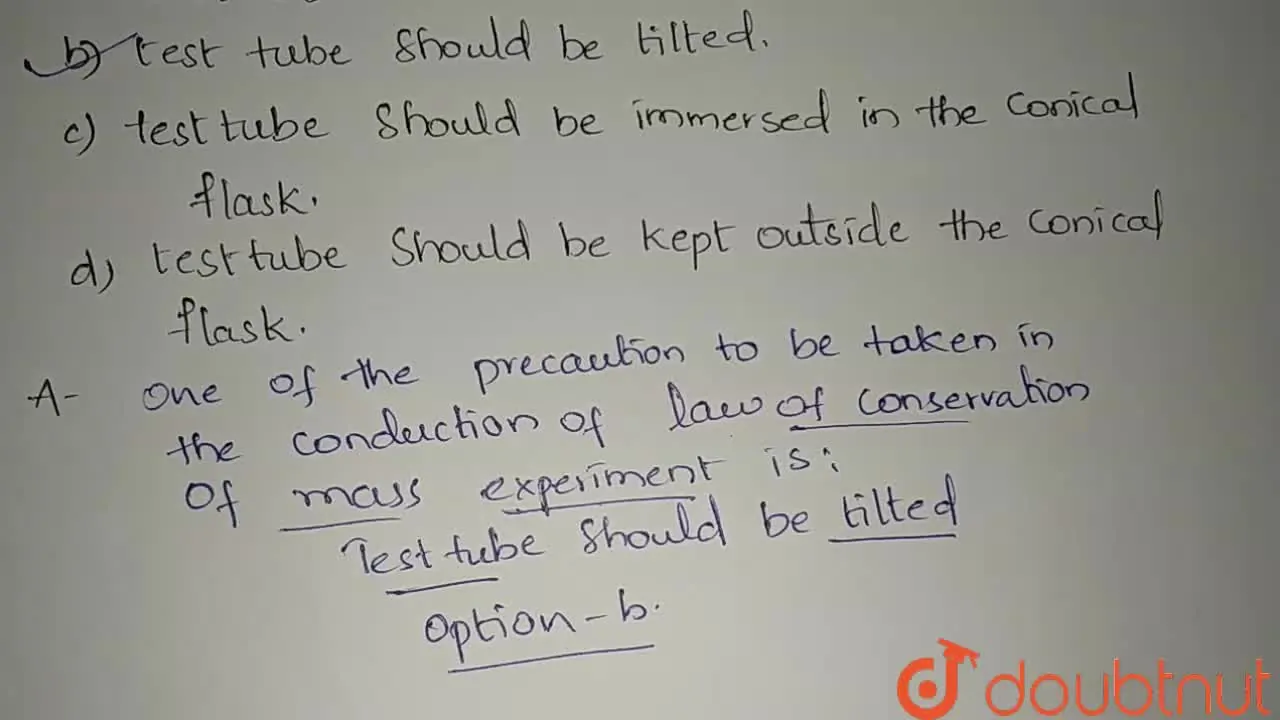 b) test tube should be tilted.
c) test tube should be immersed in the conical
flask.
d) test tube should be kept outside the conical
flask.
A- one of the precaution to be taken in
the conduction of law of conservation
of mass experiment is:
Test tube should be tilted
option-b.
doubtnut